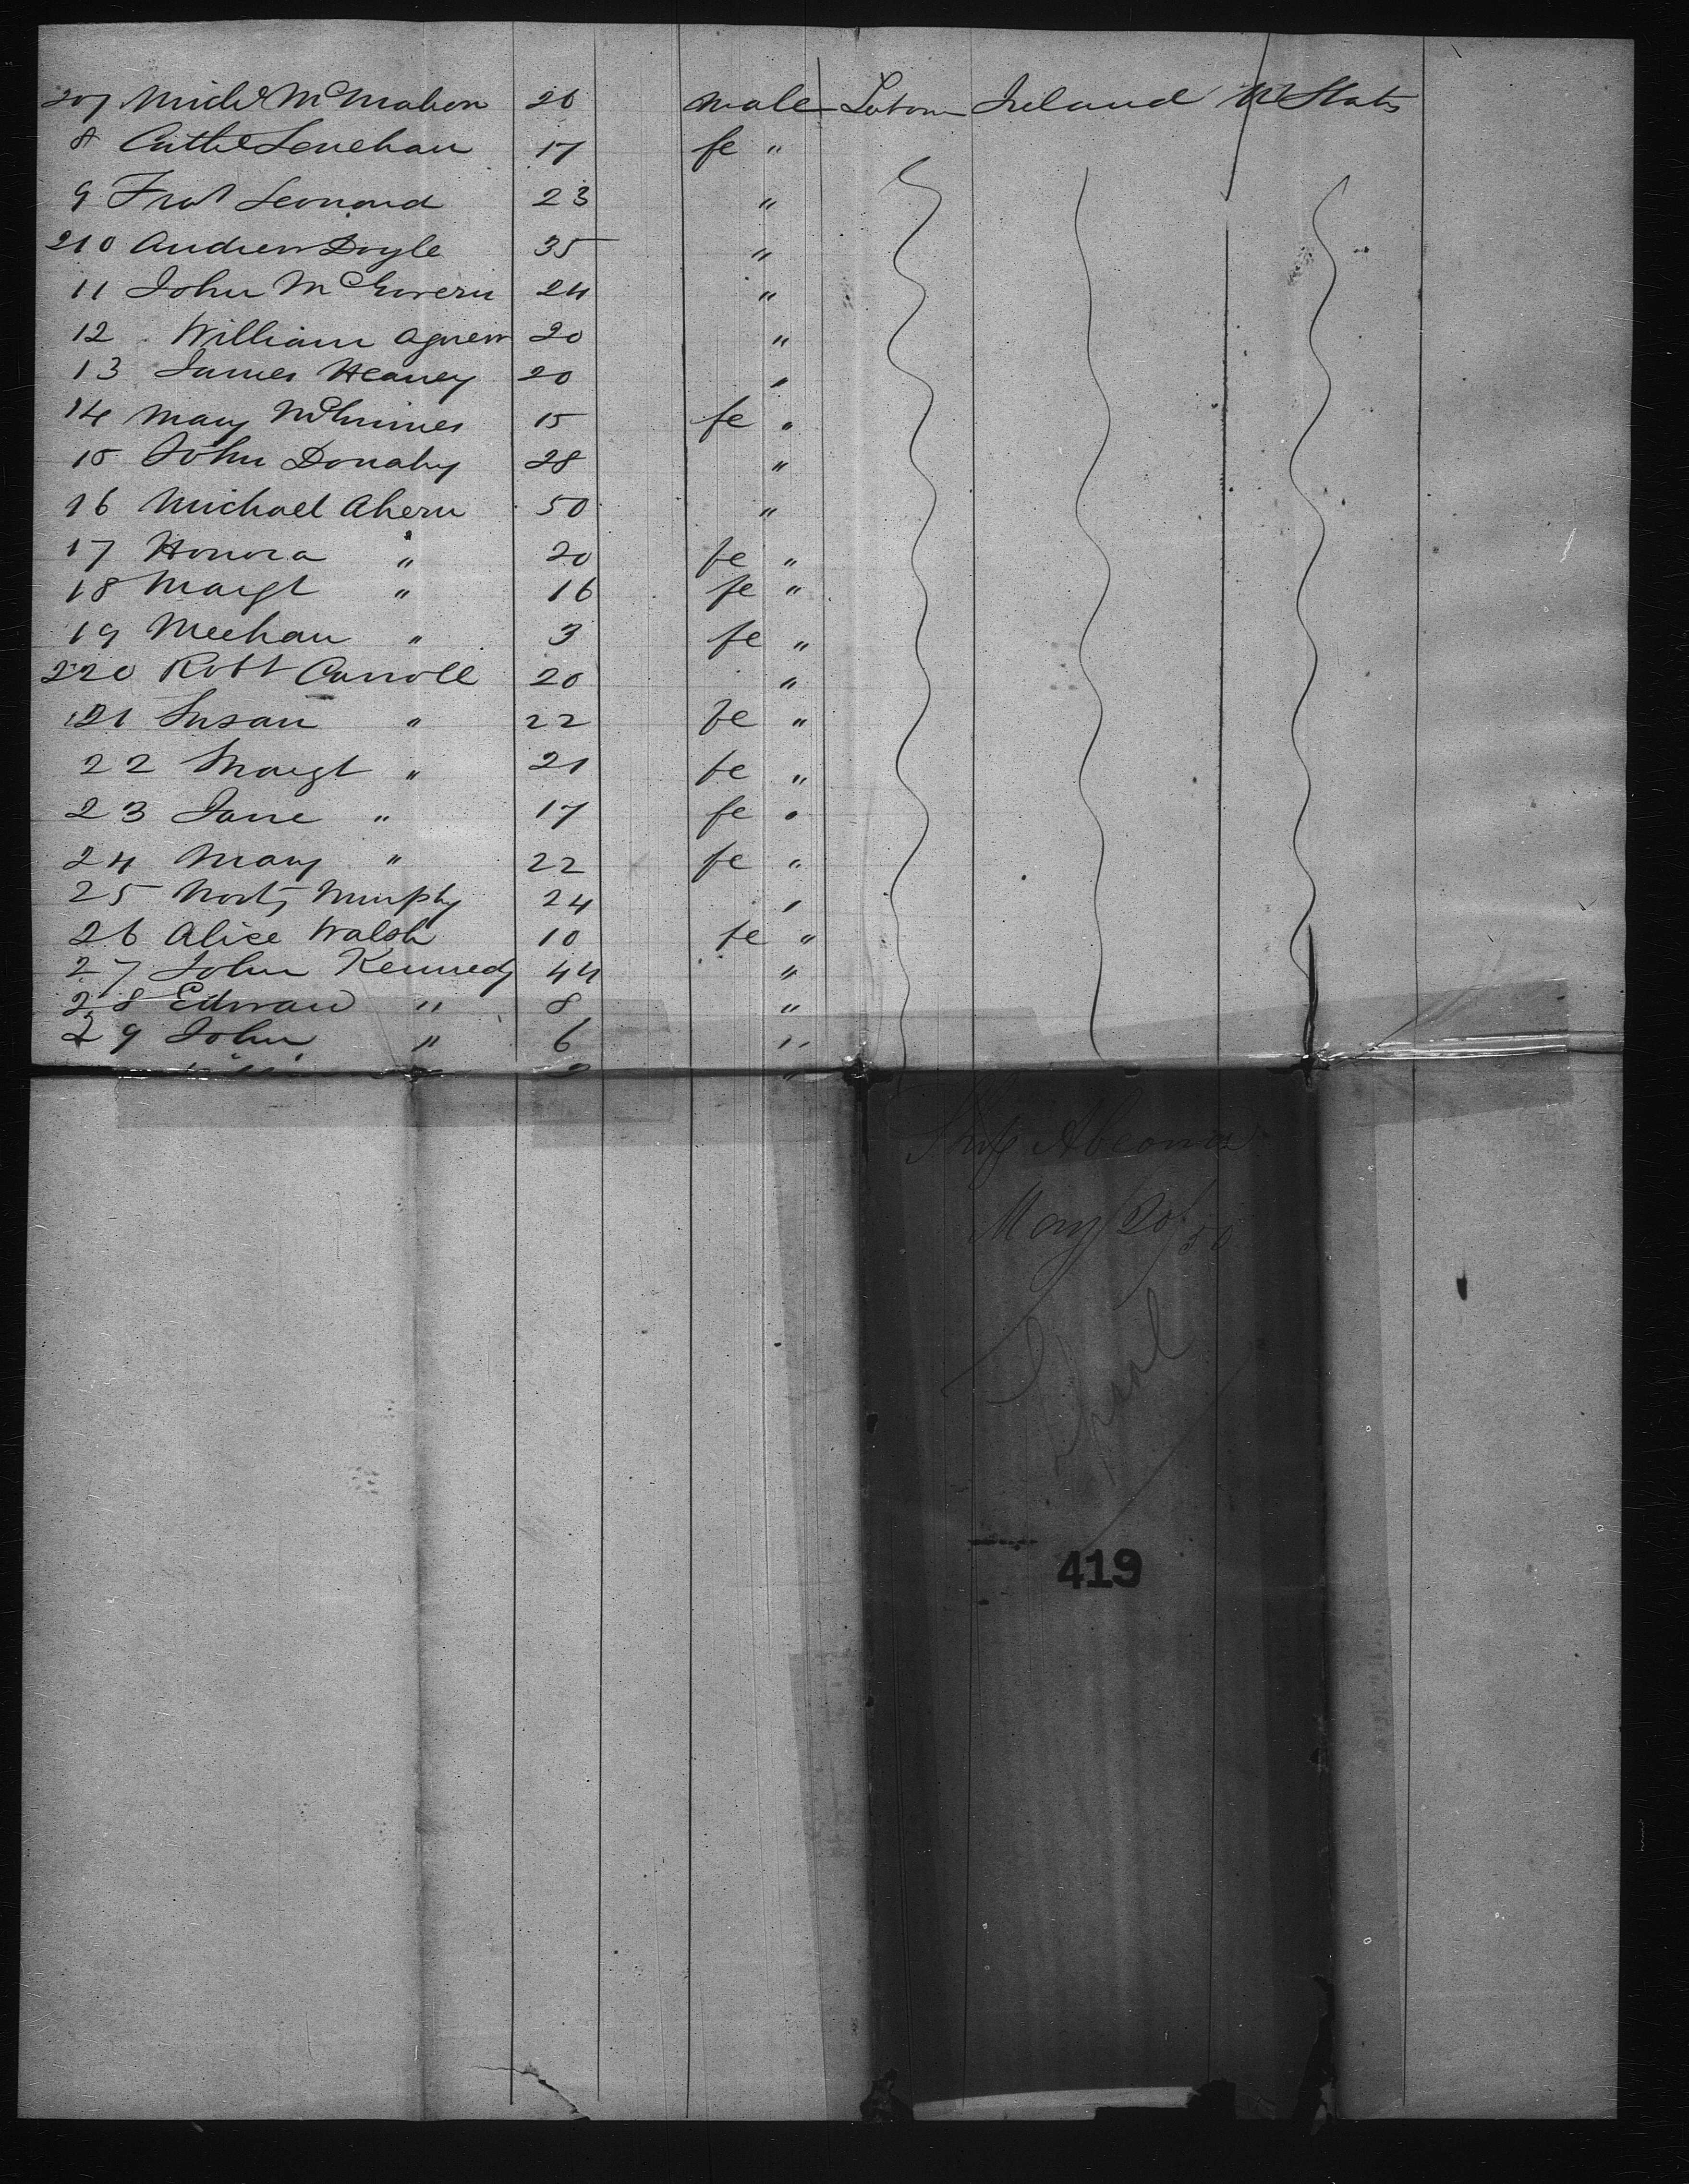 207 Michl McMahon 26 male Labour Ireland U States
8 Cathe Lenehan 17 fe "
9 Fras Leonard 23 "
210 Andrew Doyle 35 "
11 John McGovern 24 "
12 William Agnew 20 "
13 James Heaney 20 "
14 Mary McGinnes 15 fe "
15 John Donahy 28 "
16 Michael Ahern 50 "
17 Honora " 20 fe "
18 Margt " 16 fe "
19 Meehan " 3 fe "
220 Robt Carroll 20 "
21 Susan " 22 fe "
22 Margt " 21 fe "
23 Jane " 17 fe "
24 Mary " 22 fe "
25 Morty Murphy 24 "
26 Alice Walsh 10 fe "
27 John Kennedy 44 "
28 Edward " 8 "
29 John " 6 "
Ship
May 20/50
Lpool
419